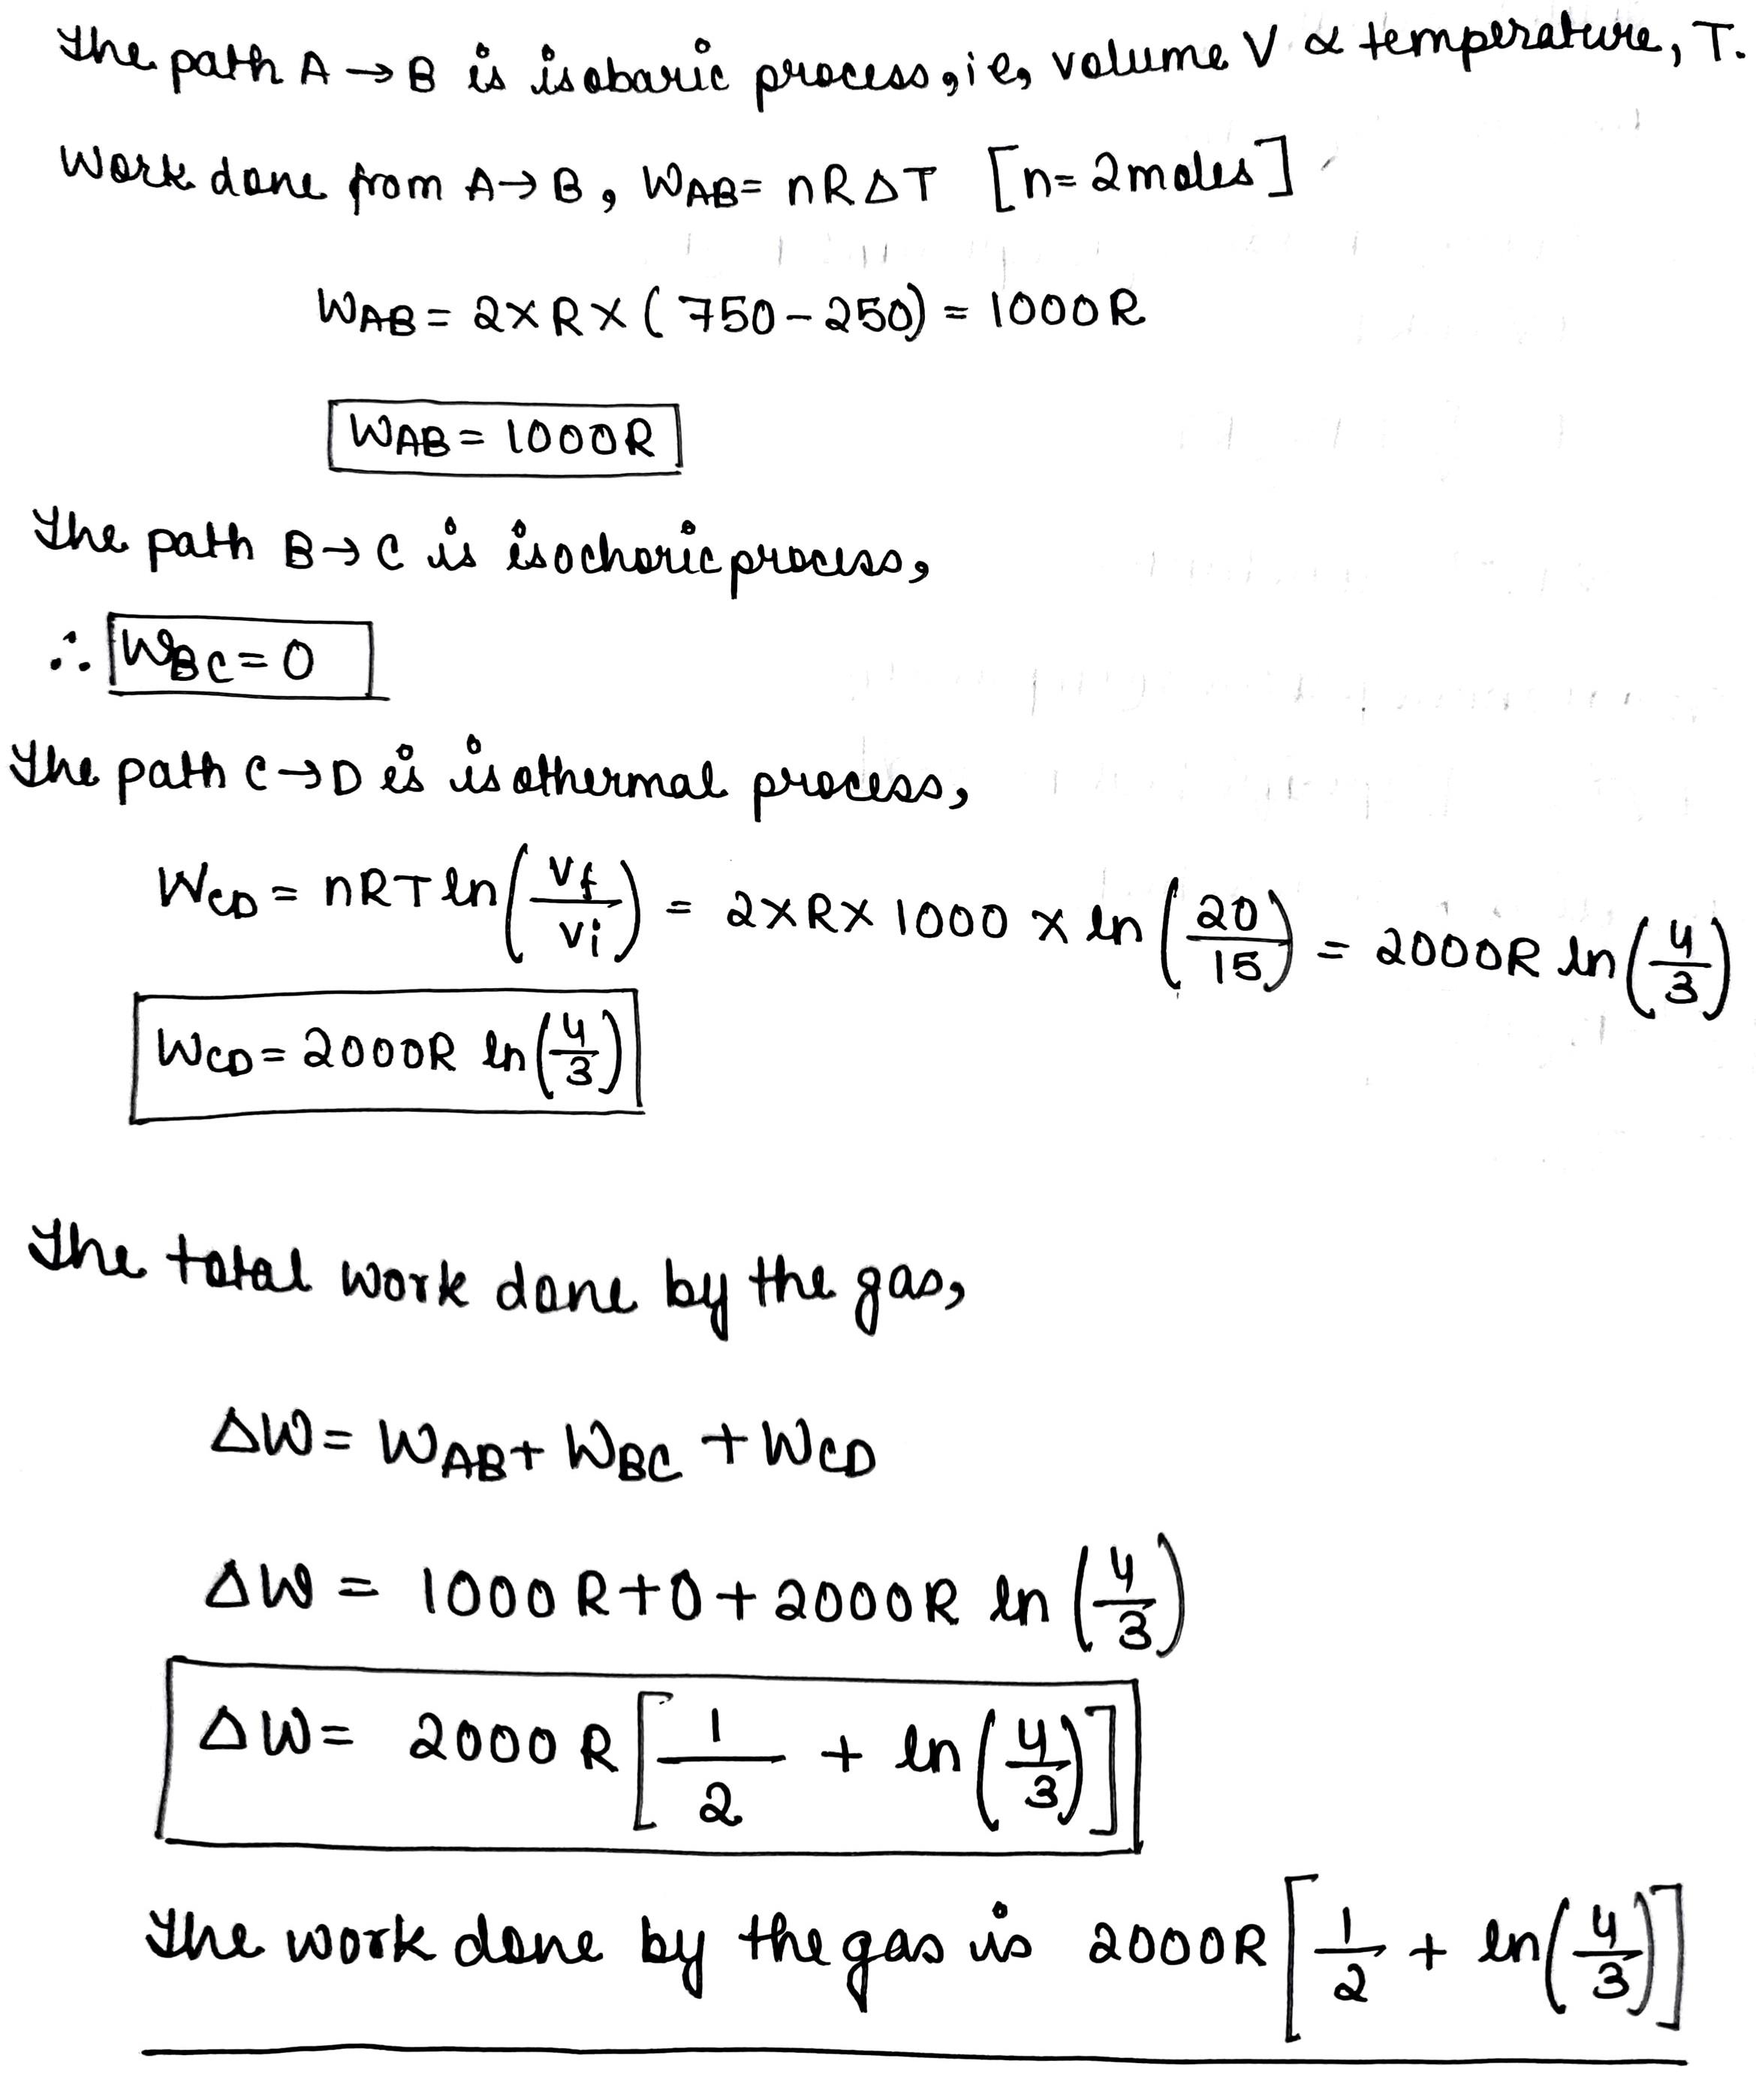 The path A → B is isobaric process, ie, volume V α temperature, T.
Work done from A→B, WAB = nRΔT [n=2moles]
WAB = 2×R×(750-250) = 1000R
WAB = 1000R
The path B→C is isochoric process,
∴ WBC=0
The path C→D is isothermal process,
WCD = nRT ln(Vf/Vi) = 2×R×1000×ln(20/15) = 2000R ln(4/3)
WCD = 2000R ln(4/3)
The total work done by the gas,
ΔW = WAB + WBC + WCD
ΔW = 1000R+0+2000R ln(4/3)
ΔW = 2000R[1/2 + ln(4/3)]
The work done by the gas is 2000R[1/2 + ln(4/3)]